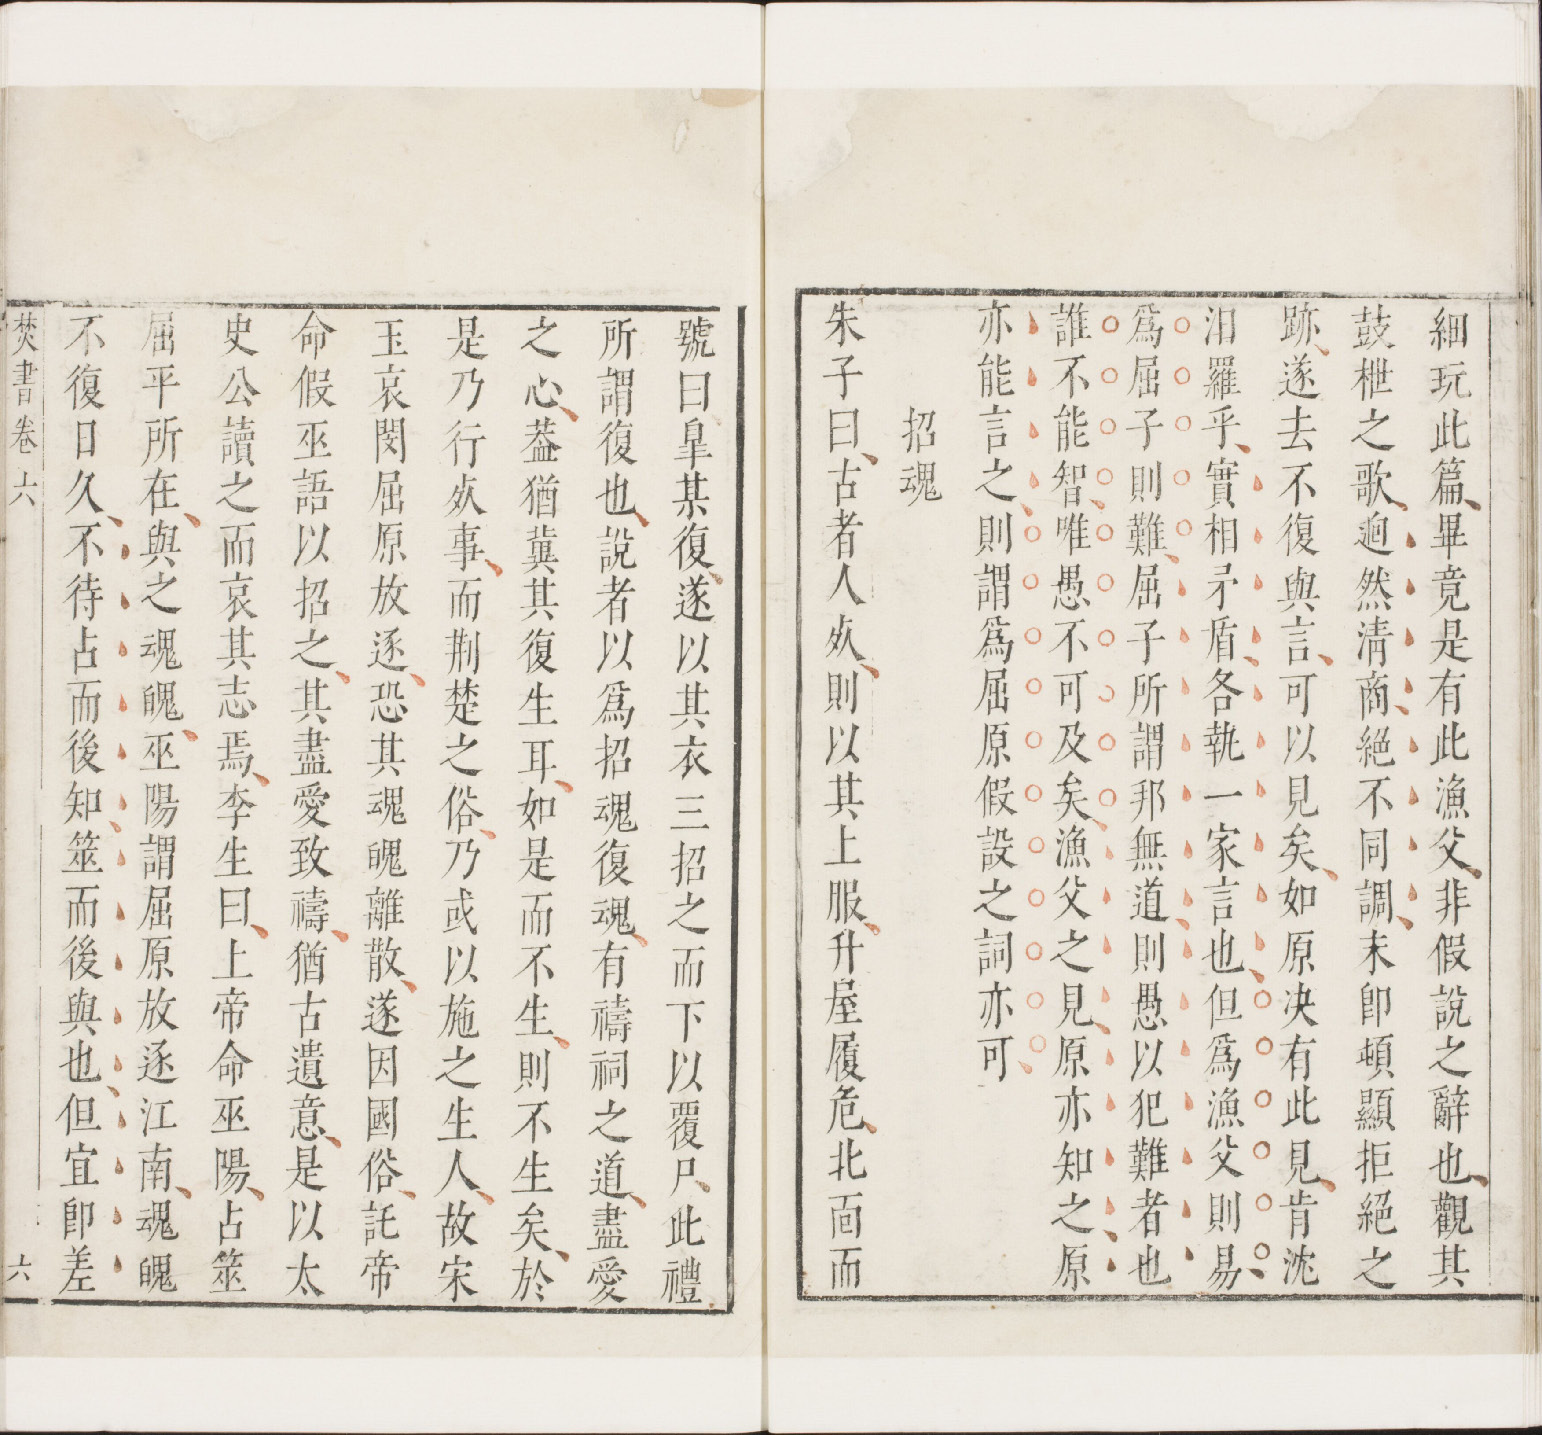 細玩此篇畢竟是有此漁父非假說之辭也觀其
鼓枻之歌逈然淸商絕不同調末卽頓顯拒絕之
跡遂去不復與言可以見矣如原决有此見肯沈
汨羅乎實相矛盾各執一家言也但爲漁父則易
爲屈子則難屈子所謂邦無道則愚以犯難者也
誰不能智唯愚不可及矣漁父之見原亦知之原
亦能言之則謂爲屈原假設之詞亦可
招魂
朱子曰古者人㱙則以其上服升屋履危北靣而
號曰臯某復遂以其衣三招之而下以覆尸此禮
所謂復也說者以爲招魂復魂有禱祠之道盡愛
之心葢猶冀其復生耳如是而不生則不生矣於
是乃行㱙事而荆楚之俗乃或以施之生人故宋
玉哀閔屈原放逐恐其魂魄離散遂因國俗託帝
命假巫語以招之其盡愛致禱猶古遺意是以太
史公讀之而哀其志焉李生曰上帝命巫陽占筮
屈平所在與之魂魄巫陽謂屈原放逐江南魂魄
不復日久不待占而後知筮而後與也但宜卽差
焚書卷六
六